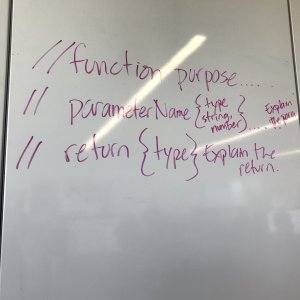 // function purpose.....
// parameterName {type string, number} ..... Explain the para
// return {type} Explain the return.